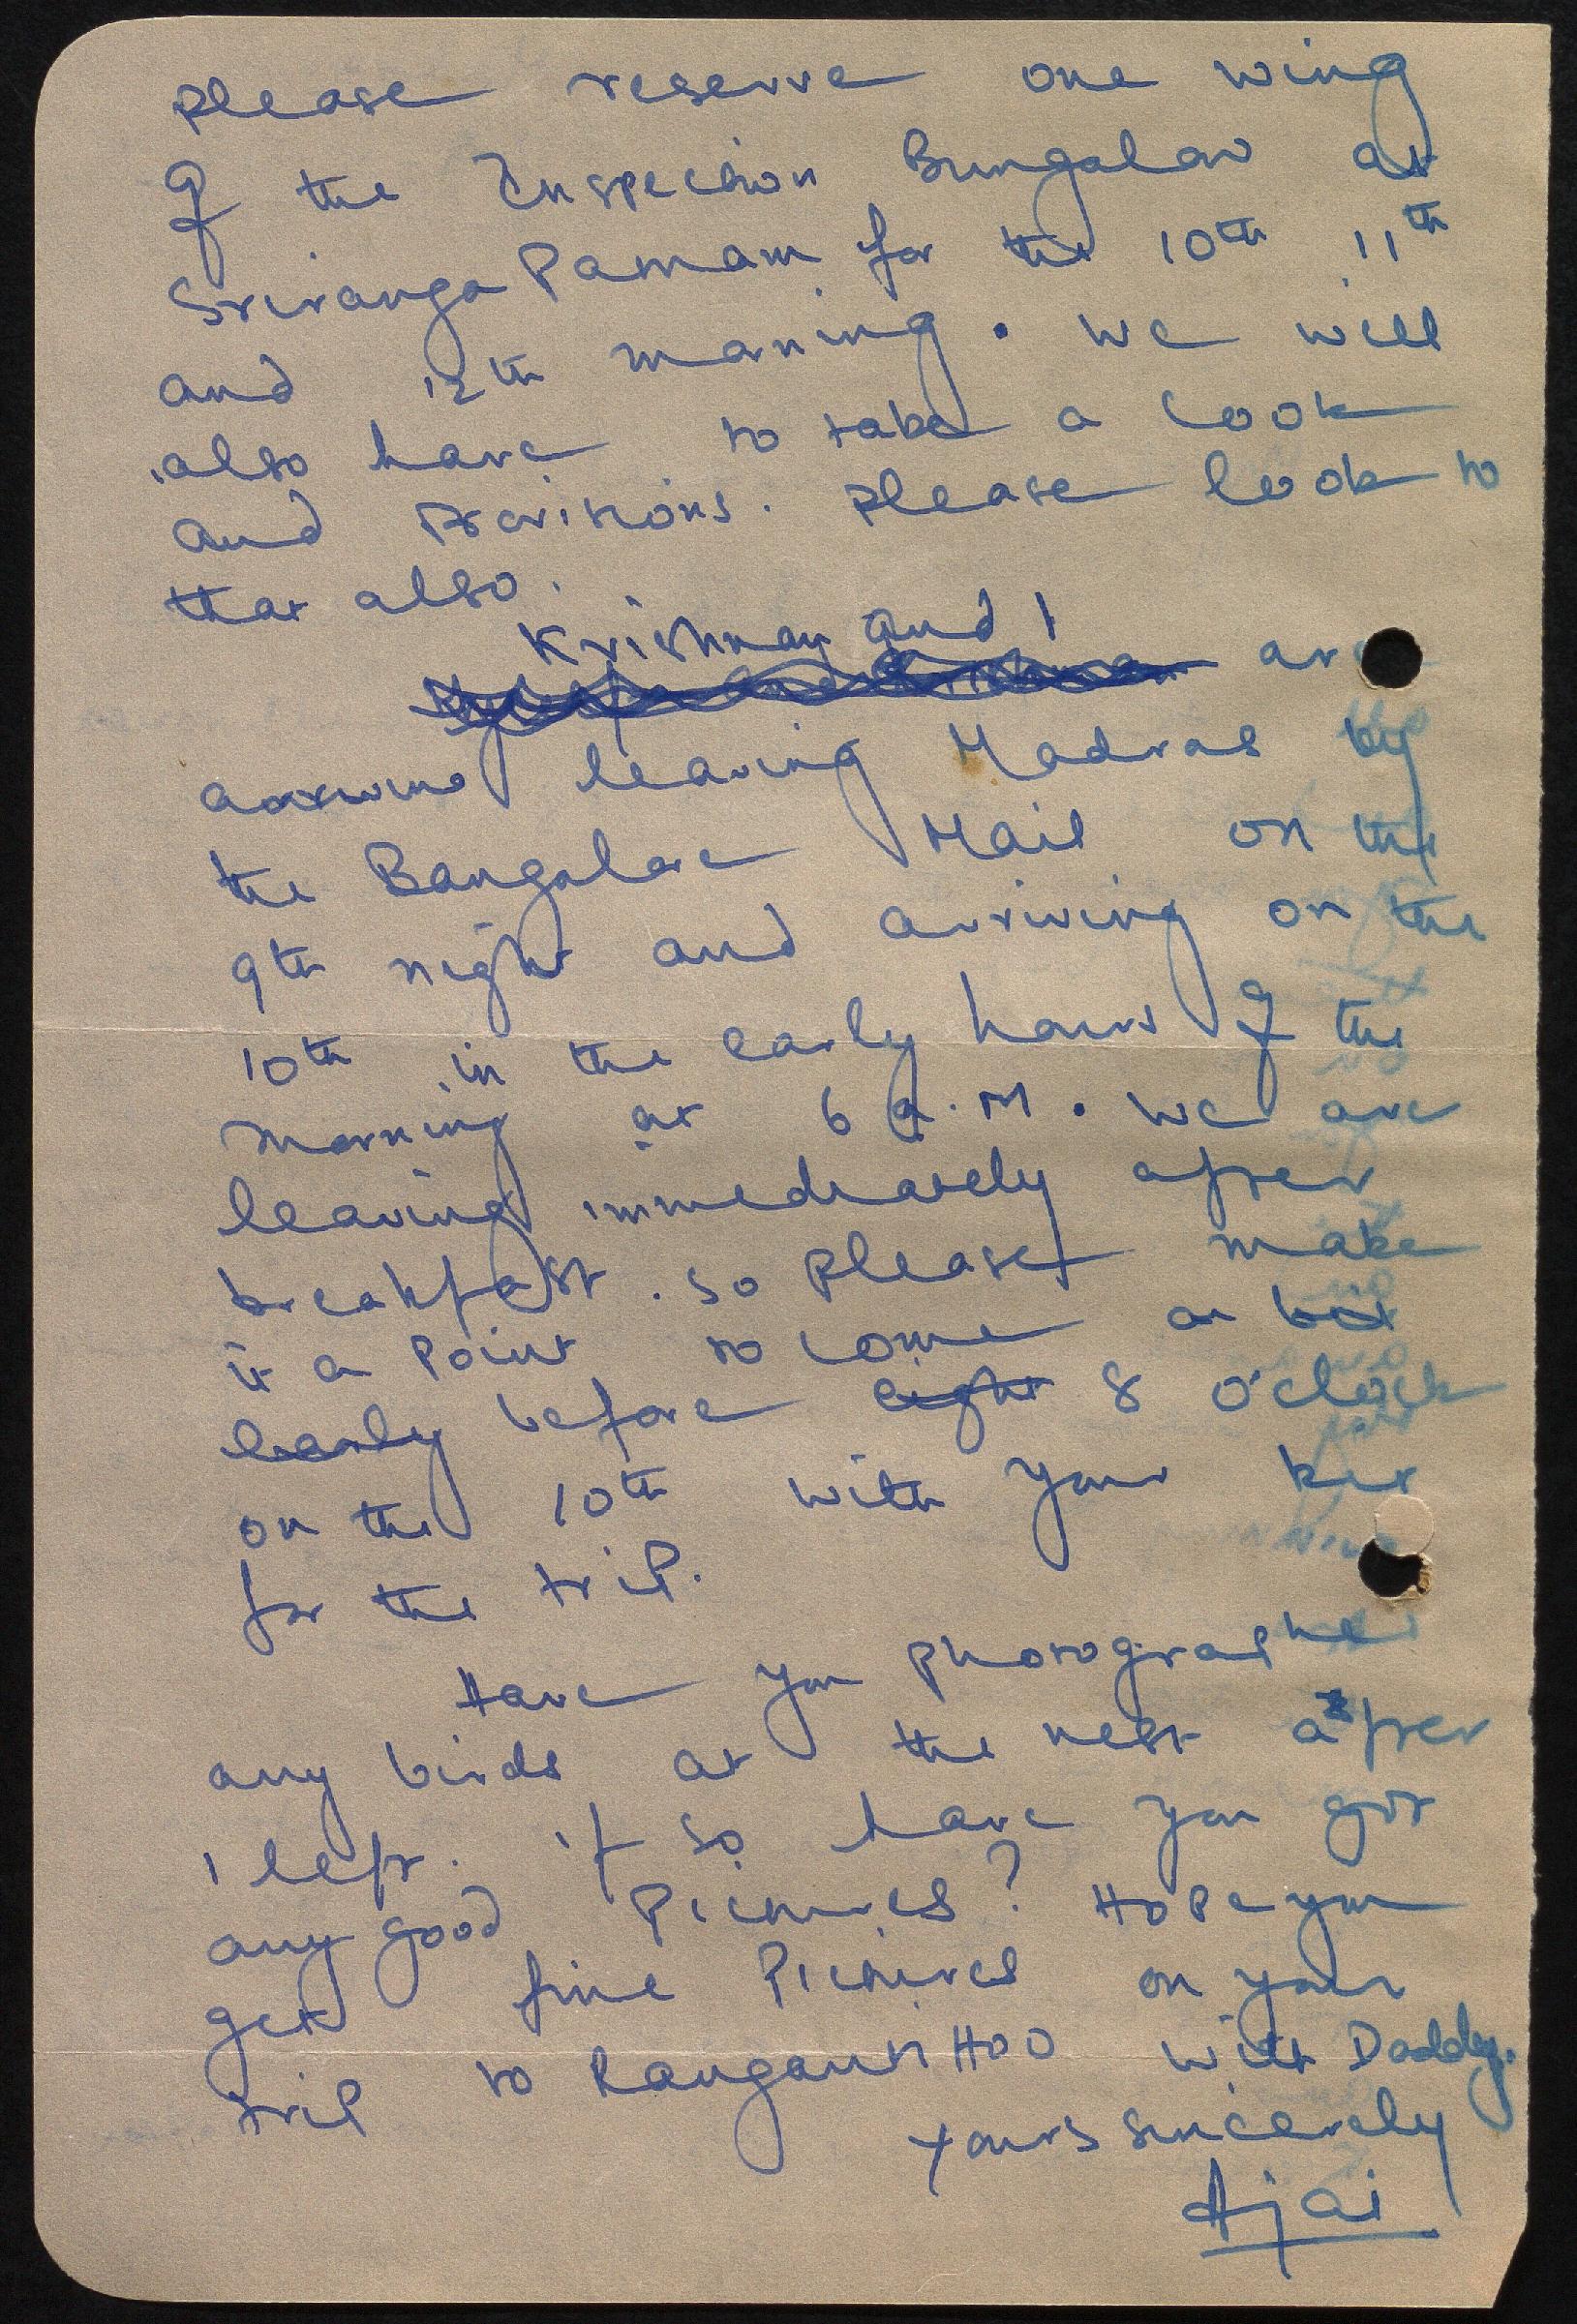 please reserve one wing
of the Inspection Bungalow at
Sriranga Patnam for the 10th 11th
and 12th morning. we will
also have to take a cook
and Provisions. please look to
that also.
Krishnan and I
are
leaving Madras by
the Bangalore Mail on the
9th night and arriving on the
10th in the early hours of the
morning at 6 a.m. we are
leaving immediately after
breakfast. so please make
it a point to come a bit
early before eight 8 o'clock
on the 10th with your kit
for the trip.
Have you photographed
any birds at the nest after
I left. if so have you got
any good pictures? Hope you
get fine Pictures on your
trip to Ranganthoo with Daddy.
yours sincerely
Ajai